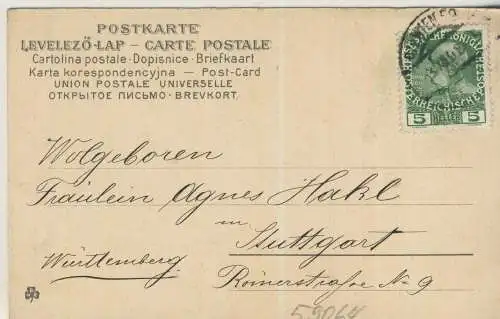 POSTKARTE
LEVELEZŐ-LAP – CARTE POSTALE
Cartolina postale · Dopisnice · Briefkaart
Karta korespondencyjna — Post-Card
UNION POSTALE UNIVERSELLE
ОТКРЫТОЕ ПИСЬМО · BREVKORT.
5 HELLER 5
Wolgeboren
Fräulein Agnes Hakl
in
Stuttgart
Württemberg.
Römerstraße No 9